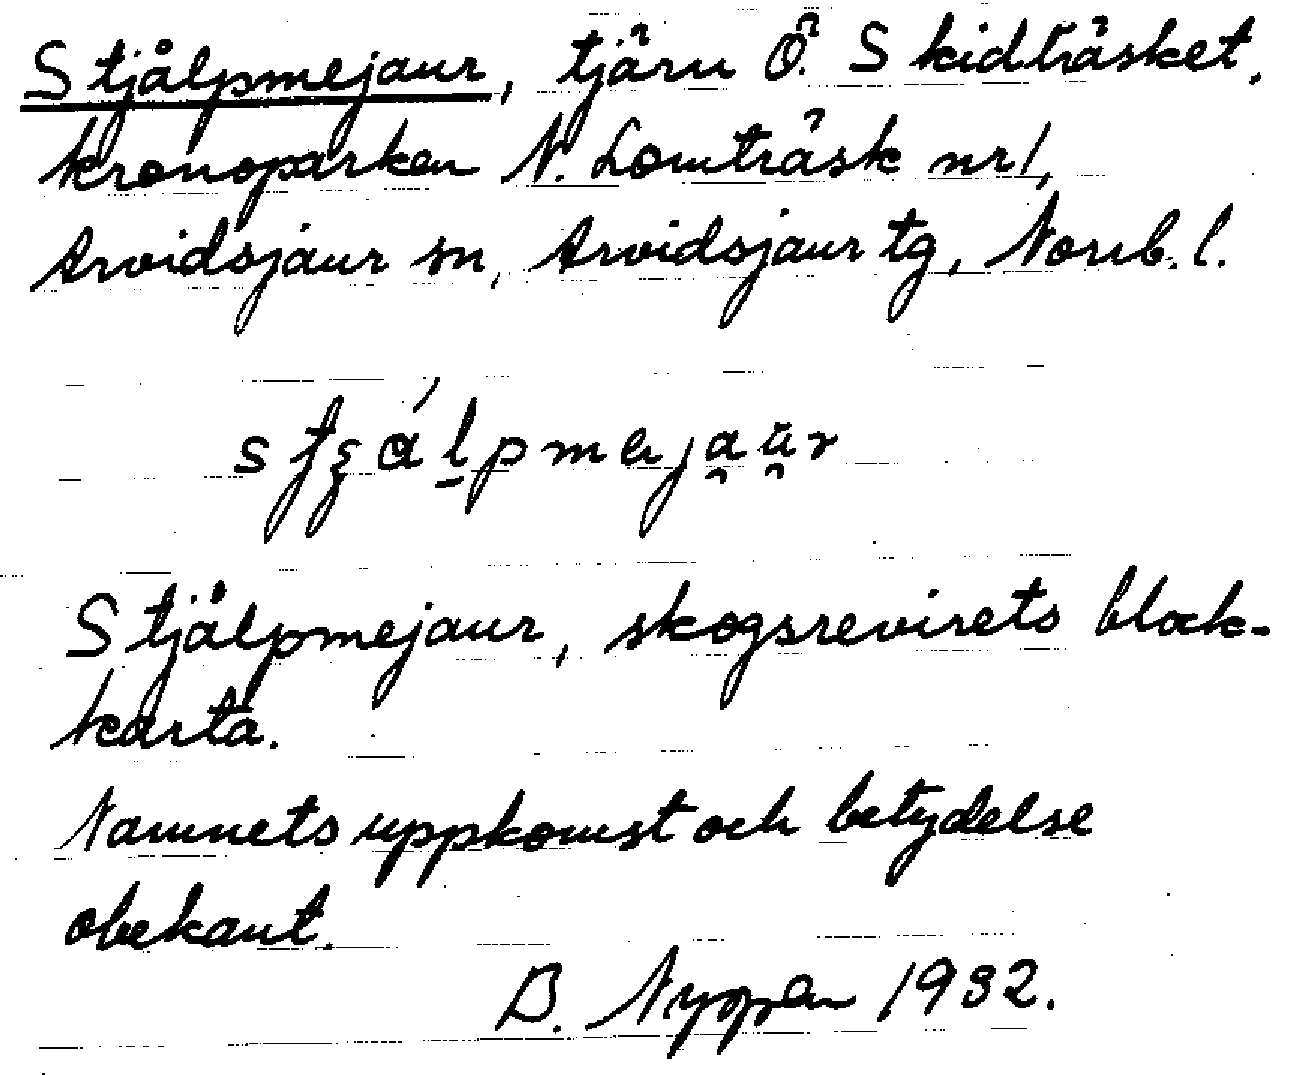 Stjålpmejaur, tjärn Ö. Skidträsket,
kronoparken N. Lomträsk nr 1,
Arvidsjaur sn, Arvidsjaur tg, Norrb. l.
Stjålpmejaur, skogsrevirets block-
karta.
Namnets uppkomst och betydelse
obekant.
B. Nyppen 1932.